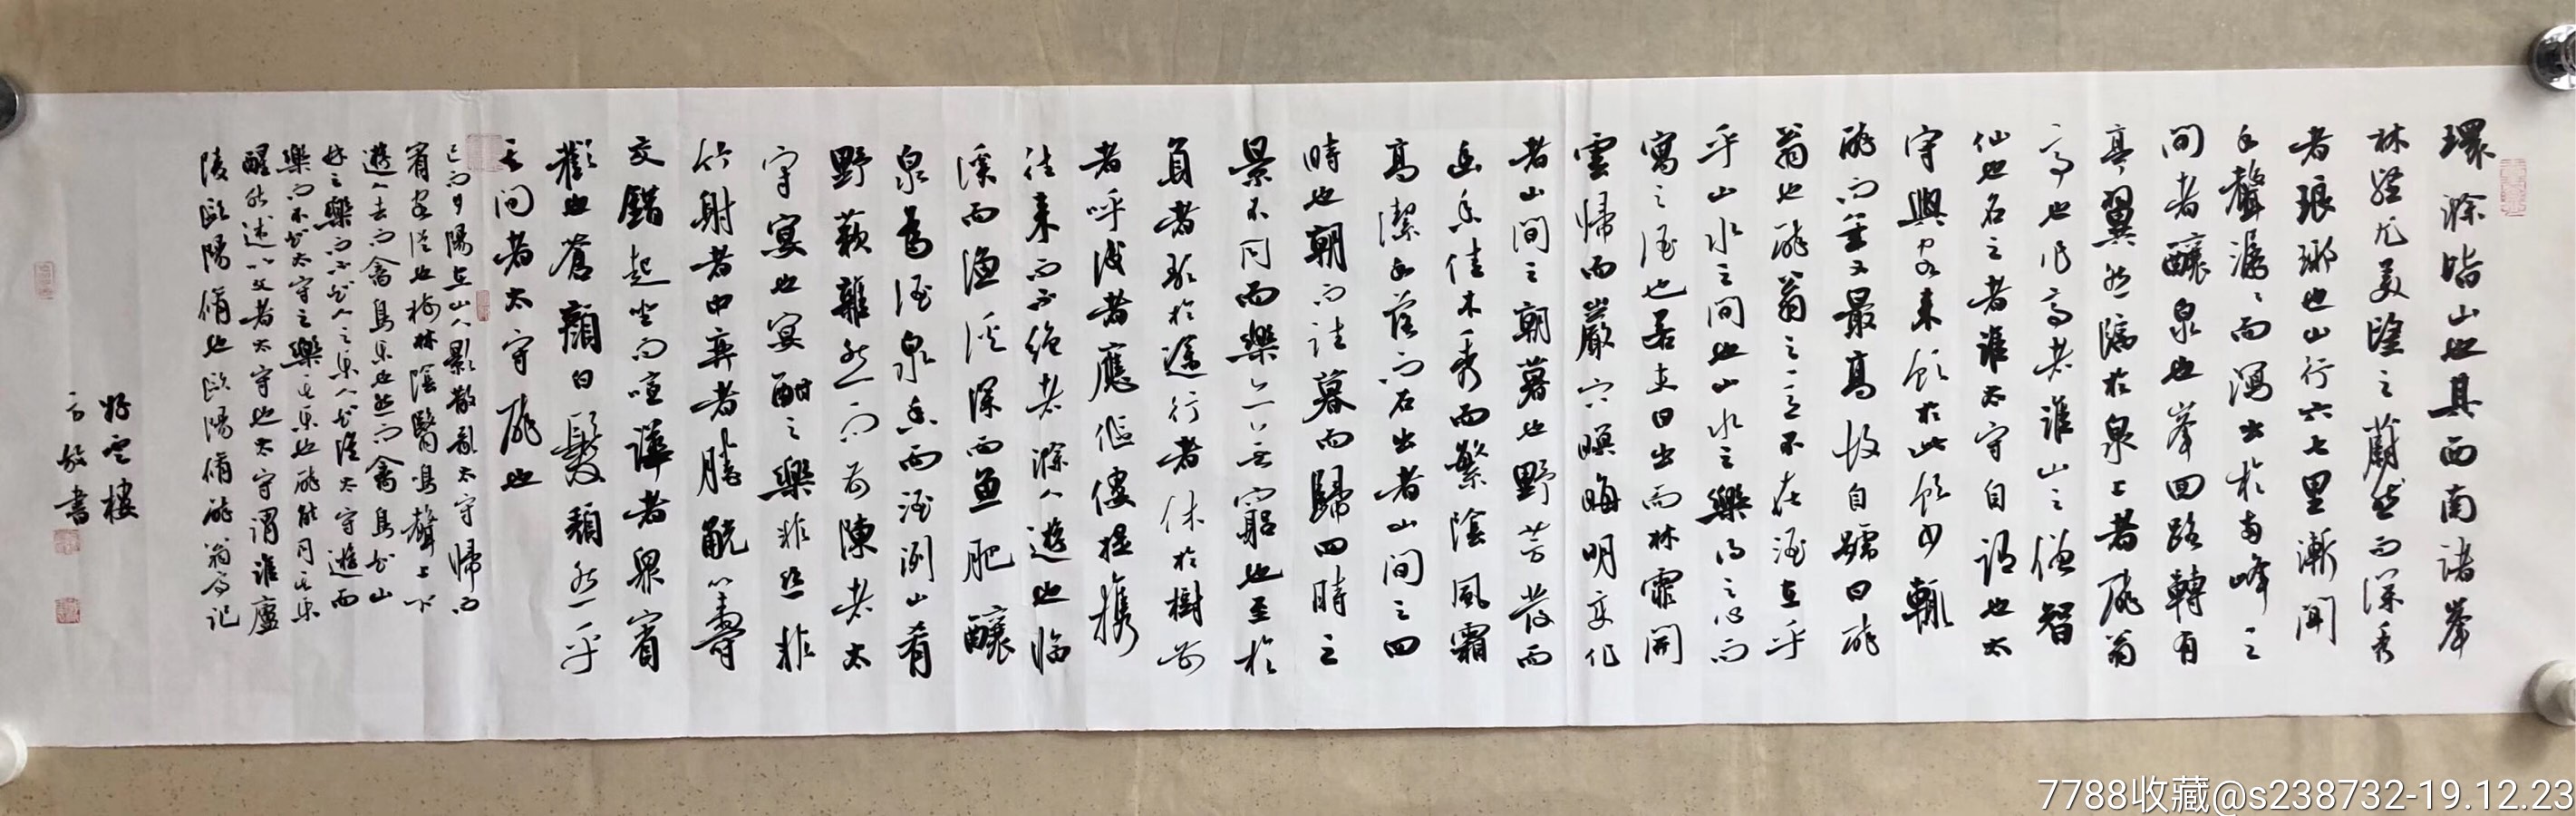 環滁皆山也其西南諸峯
林壑尤美望之蔚然而深秀
者琅琊也山行六七里漸聞
水聲潺〻而瀉出於兩峰之
間者釀泉也峯回路轉有
亭翼然臨於泉上者醉翁
亭也作亭者誰山之僧智
仙也名之者誰太守自謂也太
守與客來飲於此飲少輒
醉而年又最高故自號曰醉
翁也醉翁之意不在酒在乎
乎山水之間也山水之樂得之心而
寓之酒也若夫日出而林霏開
雲歸而巖穴暝晦明變化
者山間之朝暮也野芳發而
幽香佳木秀而繁陰風霜
高潔水落而石出者山間之四
時也朝而往暮而歸四時之
景不同而樂亦無窮也至於
負者歌於途行者休於樹前
者呼後者應傴僂提攜
往來而不絕者滁人遊也臨
溪而漁溪深而魚肥釀
泉為酒泉香而酒洌山肴
野蔌雜然而前陳者太
守宴也宴酣之樂非絲非
竹射者中弈者勝觥籌
交錯起坐而喧譁者眾賓
歡也蒼顏白髮頹然乎
其間者太守醉也
已而夕陽在山人影散亂太守歸而
賓客從也樹林陰翳鳴聲上下
遊人去而禽鳥樂也然而禽鳥知山
林之樂而不知人之樂人知從太守遊而
樂而不知太守之樂其樂也醉能同其樂
醒能述以文者太守也太守謂誰廬
陵歐陽脩也歐陽脩醉翁亭記
好雲樓
方放書
7788收藏@s238732-19.12.23